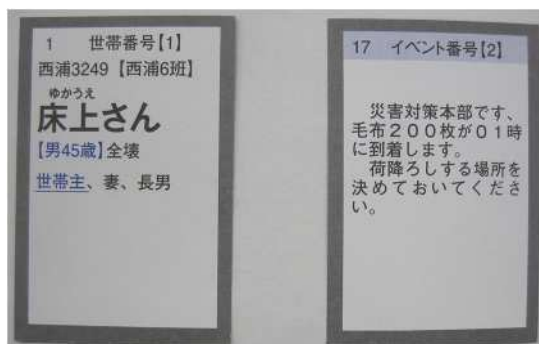 1 世帯番号【1】
西浦3249【西浦6班】
ゆかうえ
床上さん
【男45歳】全壊
世帯主、妻、長男
17 イベント番号【2】
災害対策本部です、
毛布200枚が01時
に到着します。
荷降ろしする場所を
決めておいてくださ
い。